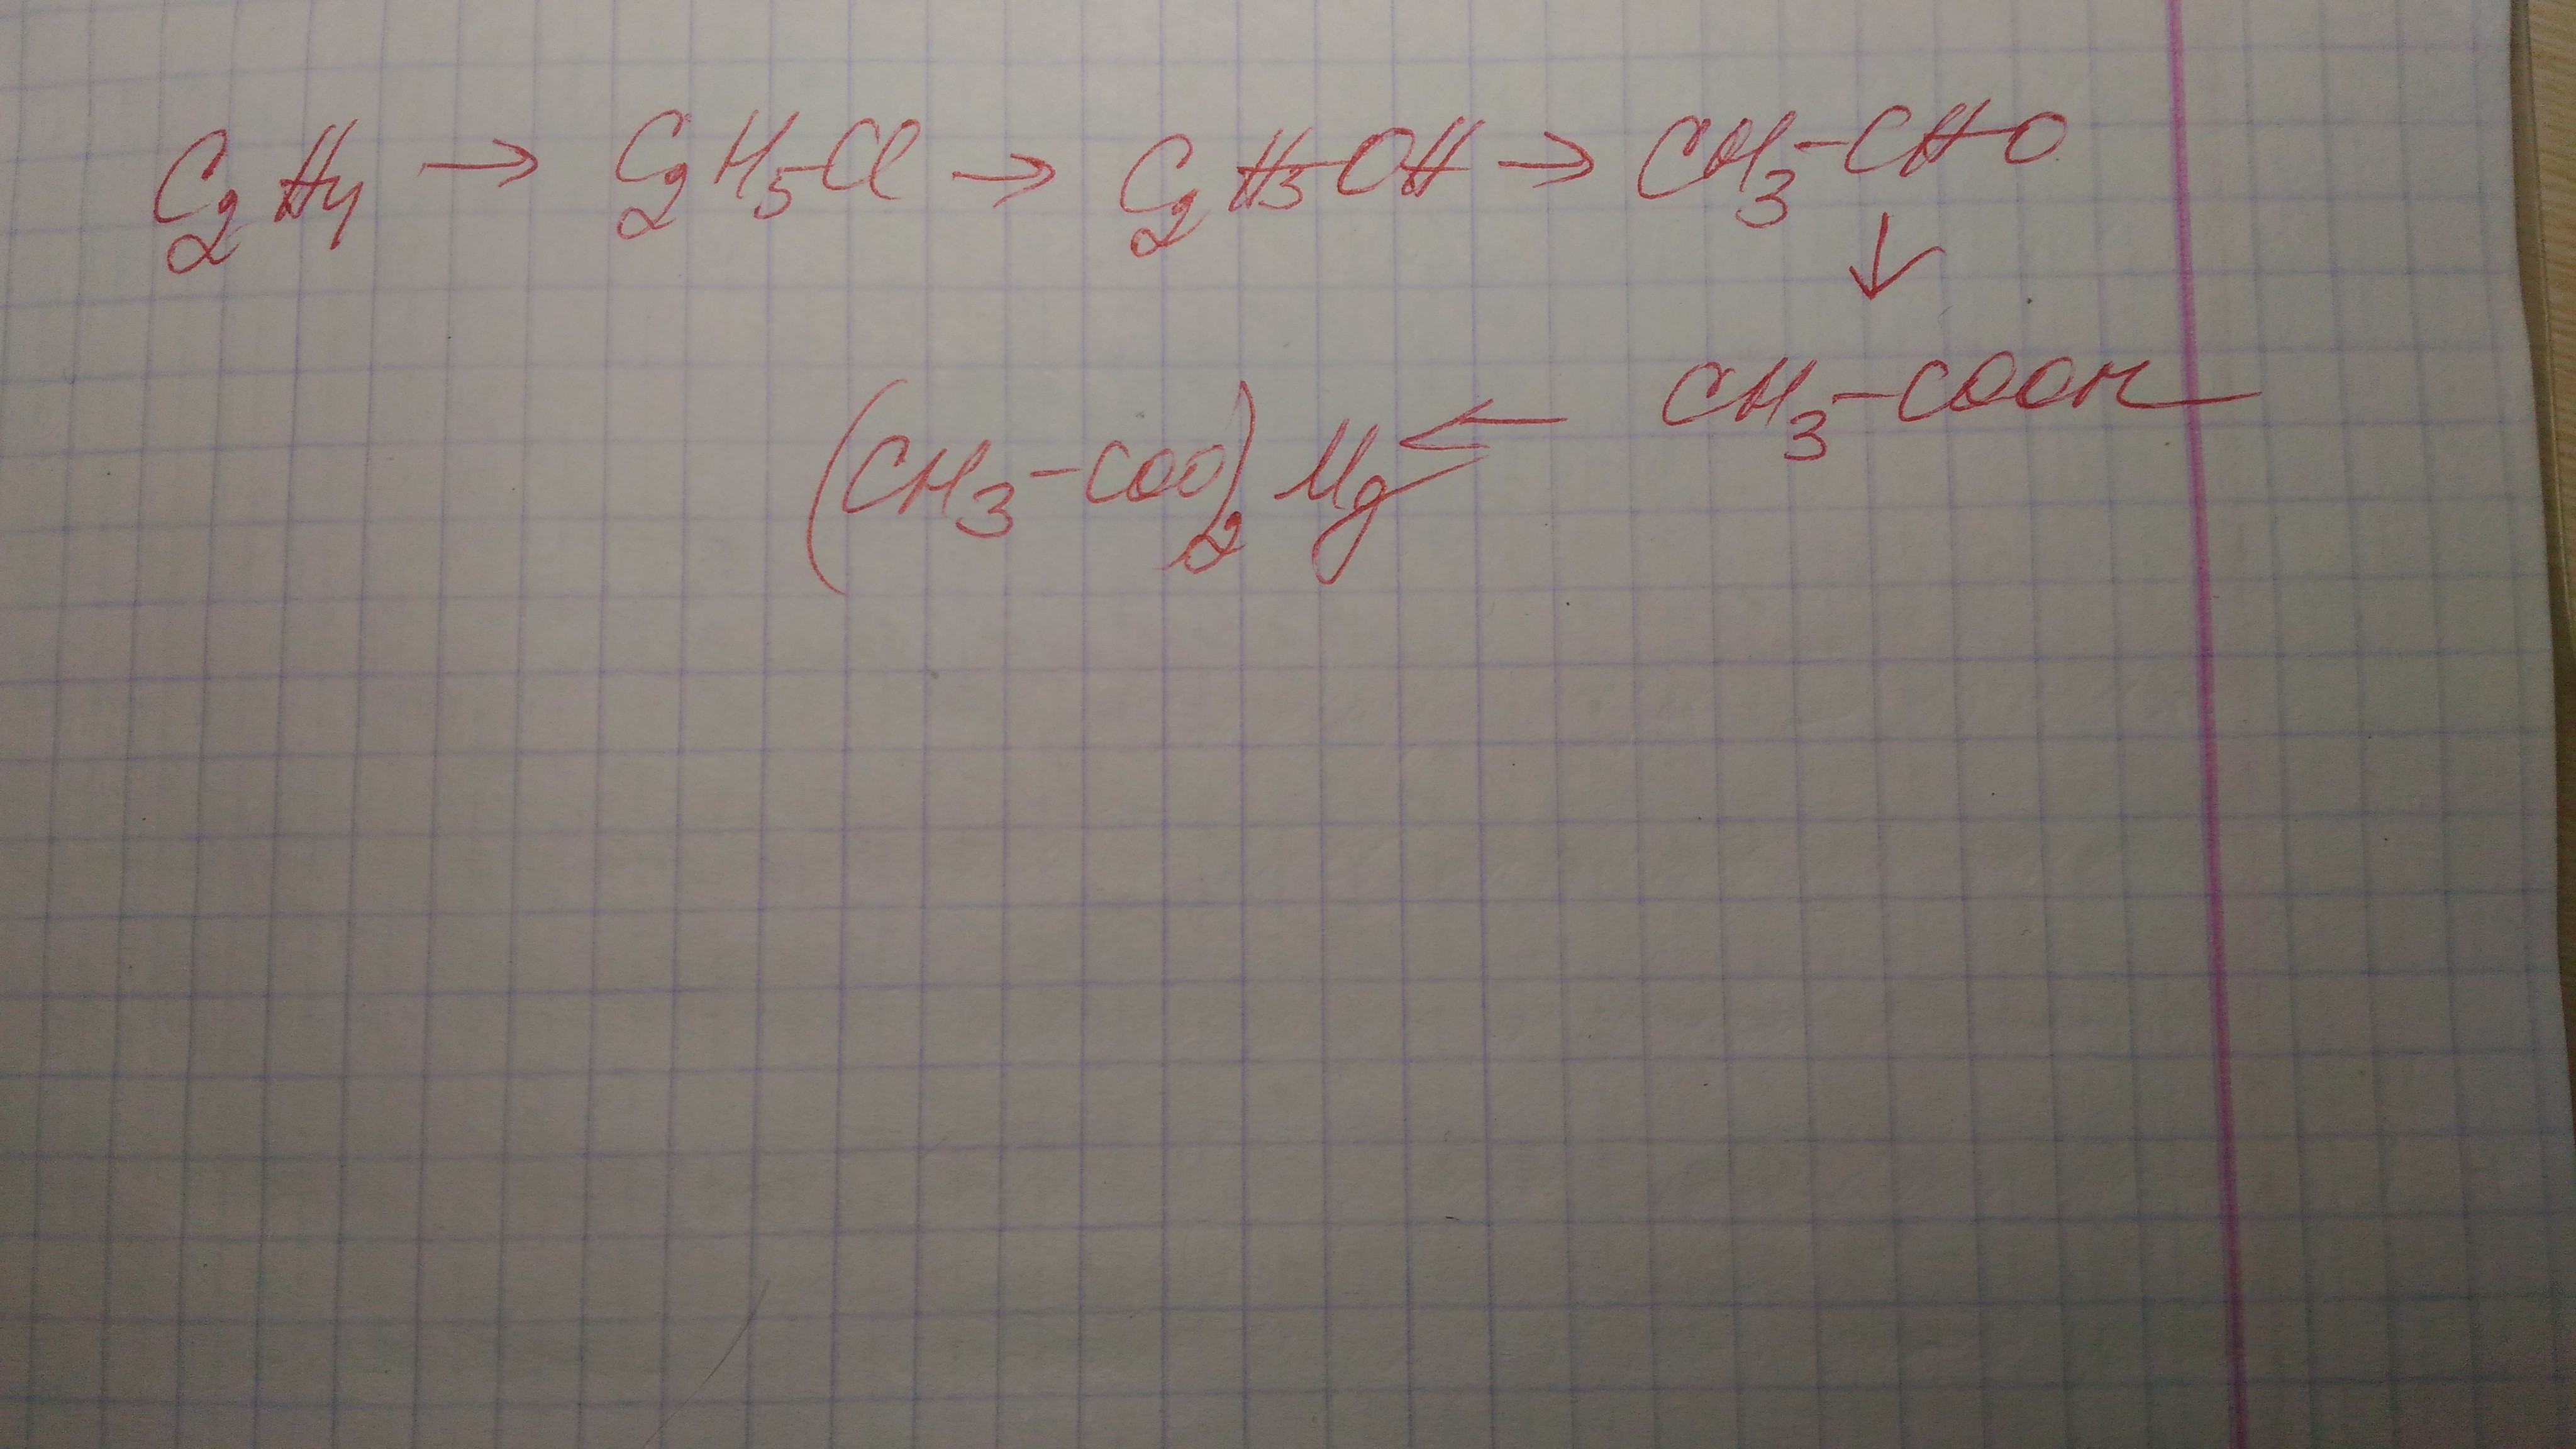 C₂H₄ → C₂H₅Cl → C₂H₅OH → CH₃-CHO
↓
(CH₃-COO)₂Mg ← CH₃-COOH